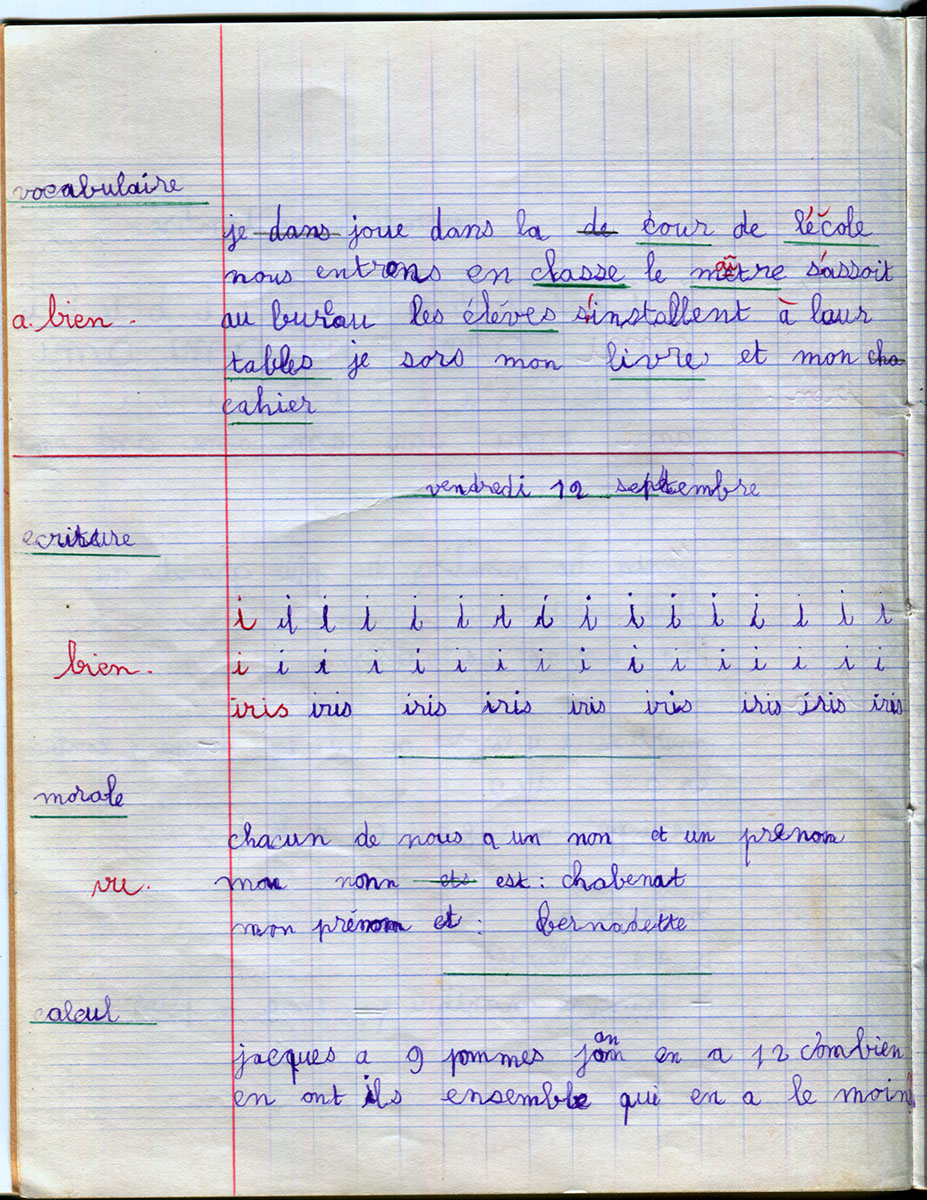 vocabulaire
je dans joue dans la de cour de l'école
nous entrons en classe le maître s'assoit
a. bien.
au bureau les éléves s'installent à leur
tables je sors mon livre et mon cha
cahier
vendredi 12 septembre
ecriture
i i i i i i i i i i i i i i i i
bien.
i i i i i i i i i i i i i i i i
iris iris iris iris iris iris iris iris iris
morale
chacun de nous a un non et un prenom
vu.
mon nonn ets est : chabenat
mon prénom et : bernadette
calcul
jacques a 9 pommes jan en a 12 combien
en ont ils ensemble qui en a le moins